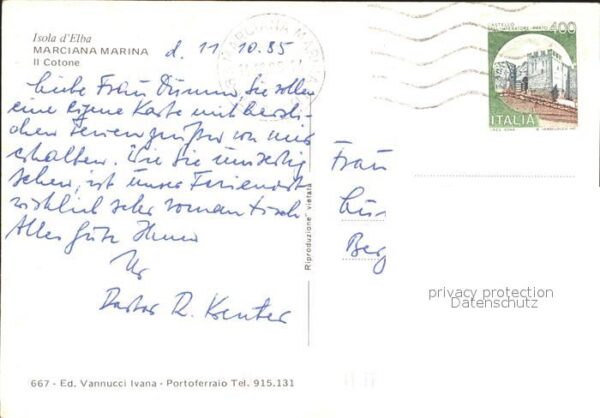 Isola d'Elba
MARCIANA MARINA
Il Cotone
d. 11.10.85
MARCIANA MARINA
CASTELLO
DELL'IMPERATORE - PRATO 400
ITALIA
Liebe Frau Dumm, Sie sollen
eine eigene Karte mit herzli-
chen Feriengrüßen von mir
erhalten. Wie Sie umseitig
sehen, ist unser Ferienort
wirklich sehr romantisch
Alles Gute Ihnen
Ihr
Pastor R. Kenter
Frau
Berg
Riproduzione vietata
privacy protection
Datenschutz
667 - Ed. Vannucci Ivana - Portoferraio Tel. 915.131